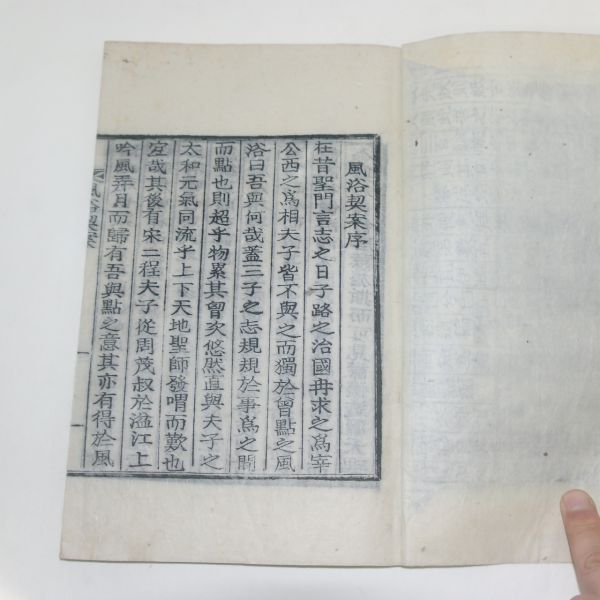 風浴契案序
在昔聖門言志之日子路之治國冉求之爲宰
公西之爲相夫子皆不與之而獨於曾點之風
浴曰吾與何哉蓋三子之志規規於事爲之間
而點也則超乎物累其曾次悠然直與夫子之
太和元氣同流乎上下天地聖師發喟而歎也
宜哉其後有宋二程夫子從周茂叔於湓江上
吟風弄月而歸有吾與點之意其亦有得於風
風浴契案